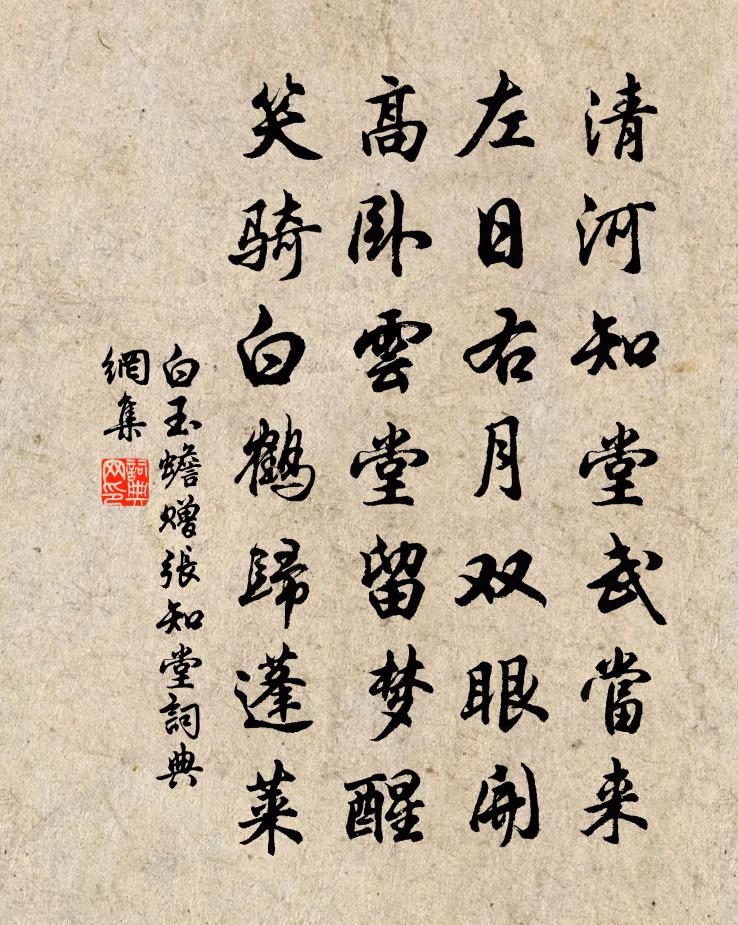 清河知堂武當来
左日右月双眼開
高卧雲堂留梦醒
笑骑白鶴歸蓬莱
白玉蟾赠張知堂詞典
網集
詞典网印